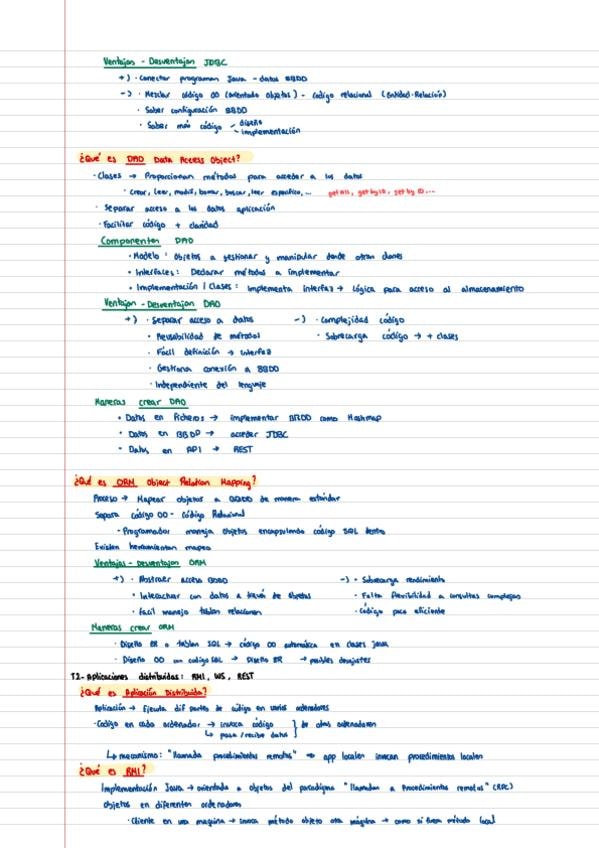 Ventajas - Desventajas JDBC
+) · Conectar programan Java - datos BBDD
-) · Mezclar código OO (orientado objetos) - código relacional (Entidad-Relación)
· Saber configuración BBDD
· Saber más código - diseño
- implementación
¿Qué es DAO Data Access Object?
· Clases → Proporcionan métodos para acceder a los datos
· Crear, leer, modif, borrar, buscar, leer específico,... get all, get by id, get by ID...
· Separar acceso a los datos aplicación
· Facilitar código + claridad
Componentes DAO
· Modelo: objetos a gestionar y manipular desde otras clases
· Interfaces: Declarar métodos a implementar
· Implementación / Clases: implementa interfaz → Lógica para acceso al almacenamiento
Ventajas - Desventajas DAO
+) · Separar acceso a datos -) · Complejidad código
· Reusabilidad de métodos · Sobrecarga código → + clases
· Fácil definición → interfaz
· Gestiona conexión a BBDD
· Independiente del lenguaje
Maneras crear DAO
· Datos en Ficheros → implementar BBDD como Hashmap
· Datos en BBDD → acceder JDBC
· Datos en API → REST
¿Qué es ORM Object Relation Mapping?
Proceso → Mapear objetos a BBDD de manera estándar
Separa código OO - Código Relacional
- Programador maneja objetos encapsulando código SQL dentro
Existen herramientas mapeo
Ventajas - desventajas ORM
+) · Abstraer acceso BBDD -) · Sobrecarga rendimiento
· Interactuar con datos a través de objetos · Falta flexibilidad a consultas complejas
· facil manejo tablas relaciones · Código poco eficiente
Maneras crear ORM
· Diseño ER o tablas SQL → código OO automática en clases java
· Diseño OO con codigo SQL → Diseño ER → posibles desajustes
T2- Aplicaciones distribuidas: RMI, WS, REST
¿Qué es Aplicación Distribuida?
Aplicación → Ejecuta dif partes de código en varios ordenadores
· Código en cada ordenador → invoca código } de otros ordenadores
↳ pasa/recibe datos
↳ mecanismo: "llamada procedimientos remotos" → app locales invocan procedimientos locales
¿Qué es RMI?
Implementación Java → orientada a objetos del paradigma "llamadas a Procedimientos remotos" (RPC)
objetos en diferentes ordenadores
· Cliente en una maquina → invoca método objeto otra máquina → como si fuera método local